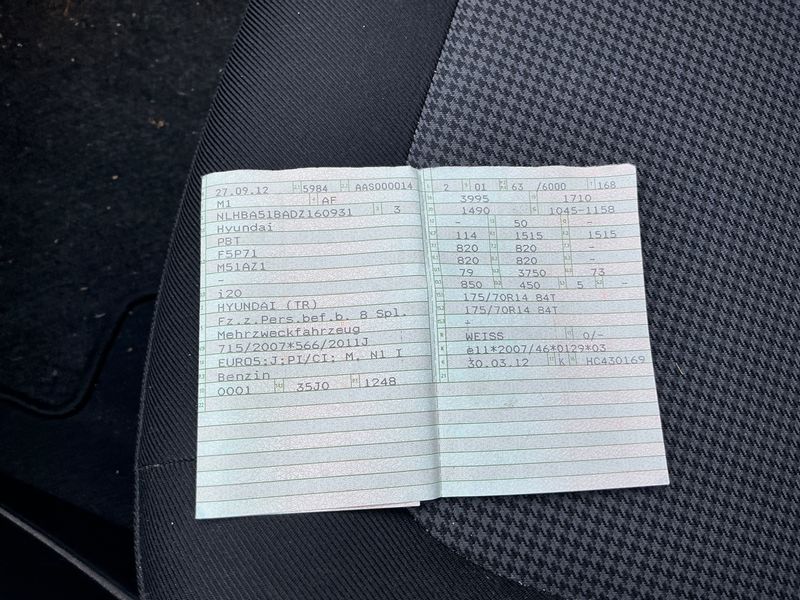 27.09.12 5984 AAS000014
M1 AF
NLHBA51BADZ160931 3
Hyundai
PBT
F5P71
M51AZ1
-
i20
HYUNDAI (TR)
Fz.z.Pers.bef.b. 8 Spl.
Mehrzweckfahrzeug
715/2007*566/2011J
EURO5;J;PI/CI; M, N1 I
Benzin
0001 35J0 1248
2 01 63 /6000 168
3995 1710
1490 1045-1158
- 50 -
114 1515 1515
820 820 -
820 820 -
79 3750 73
850 450 5 -
175/70R14 84T
175/70R14 84T
-
WEISS 0/-
e11*2007/46*0129*03
30.03.12 K HC430169